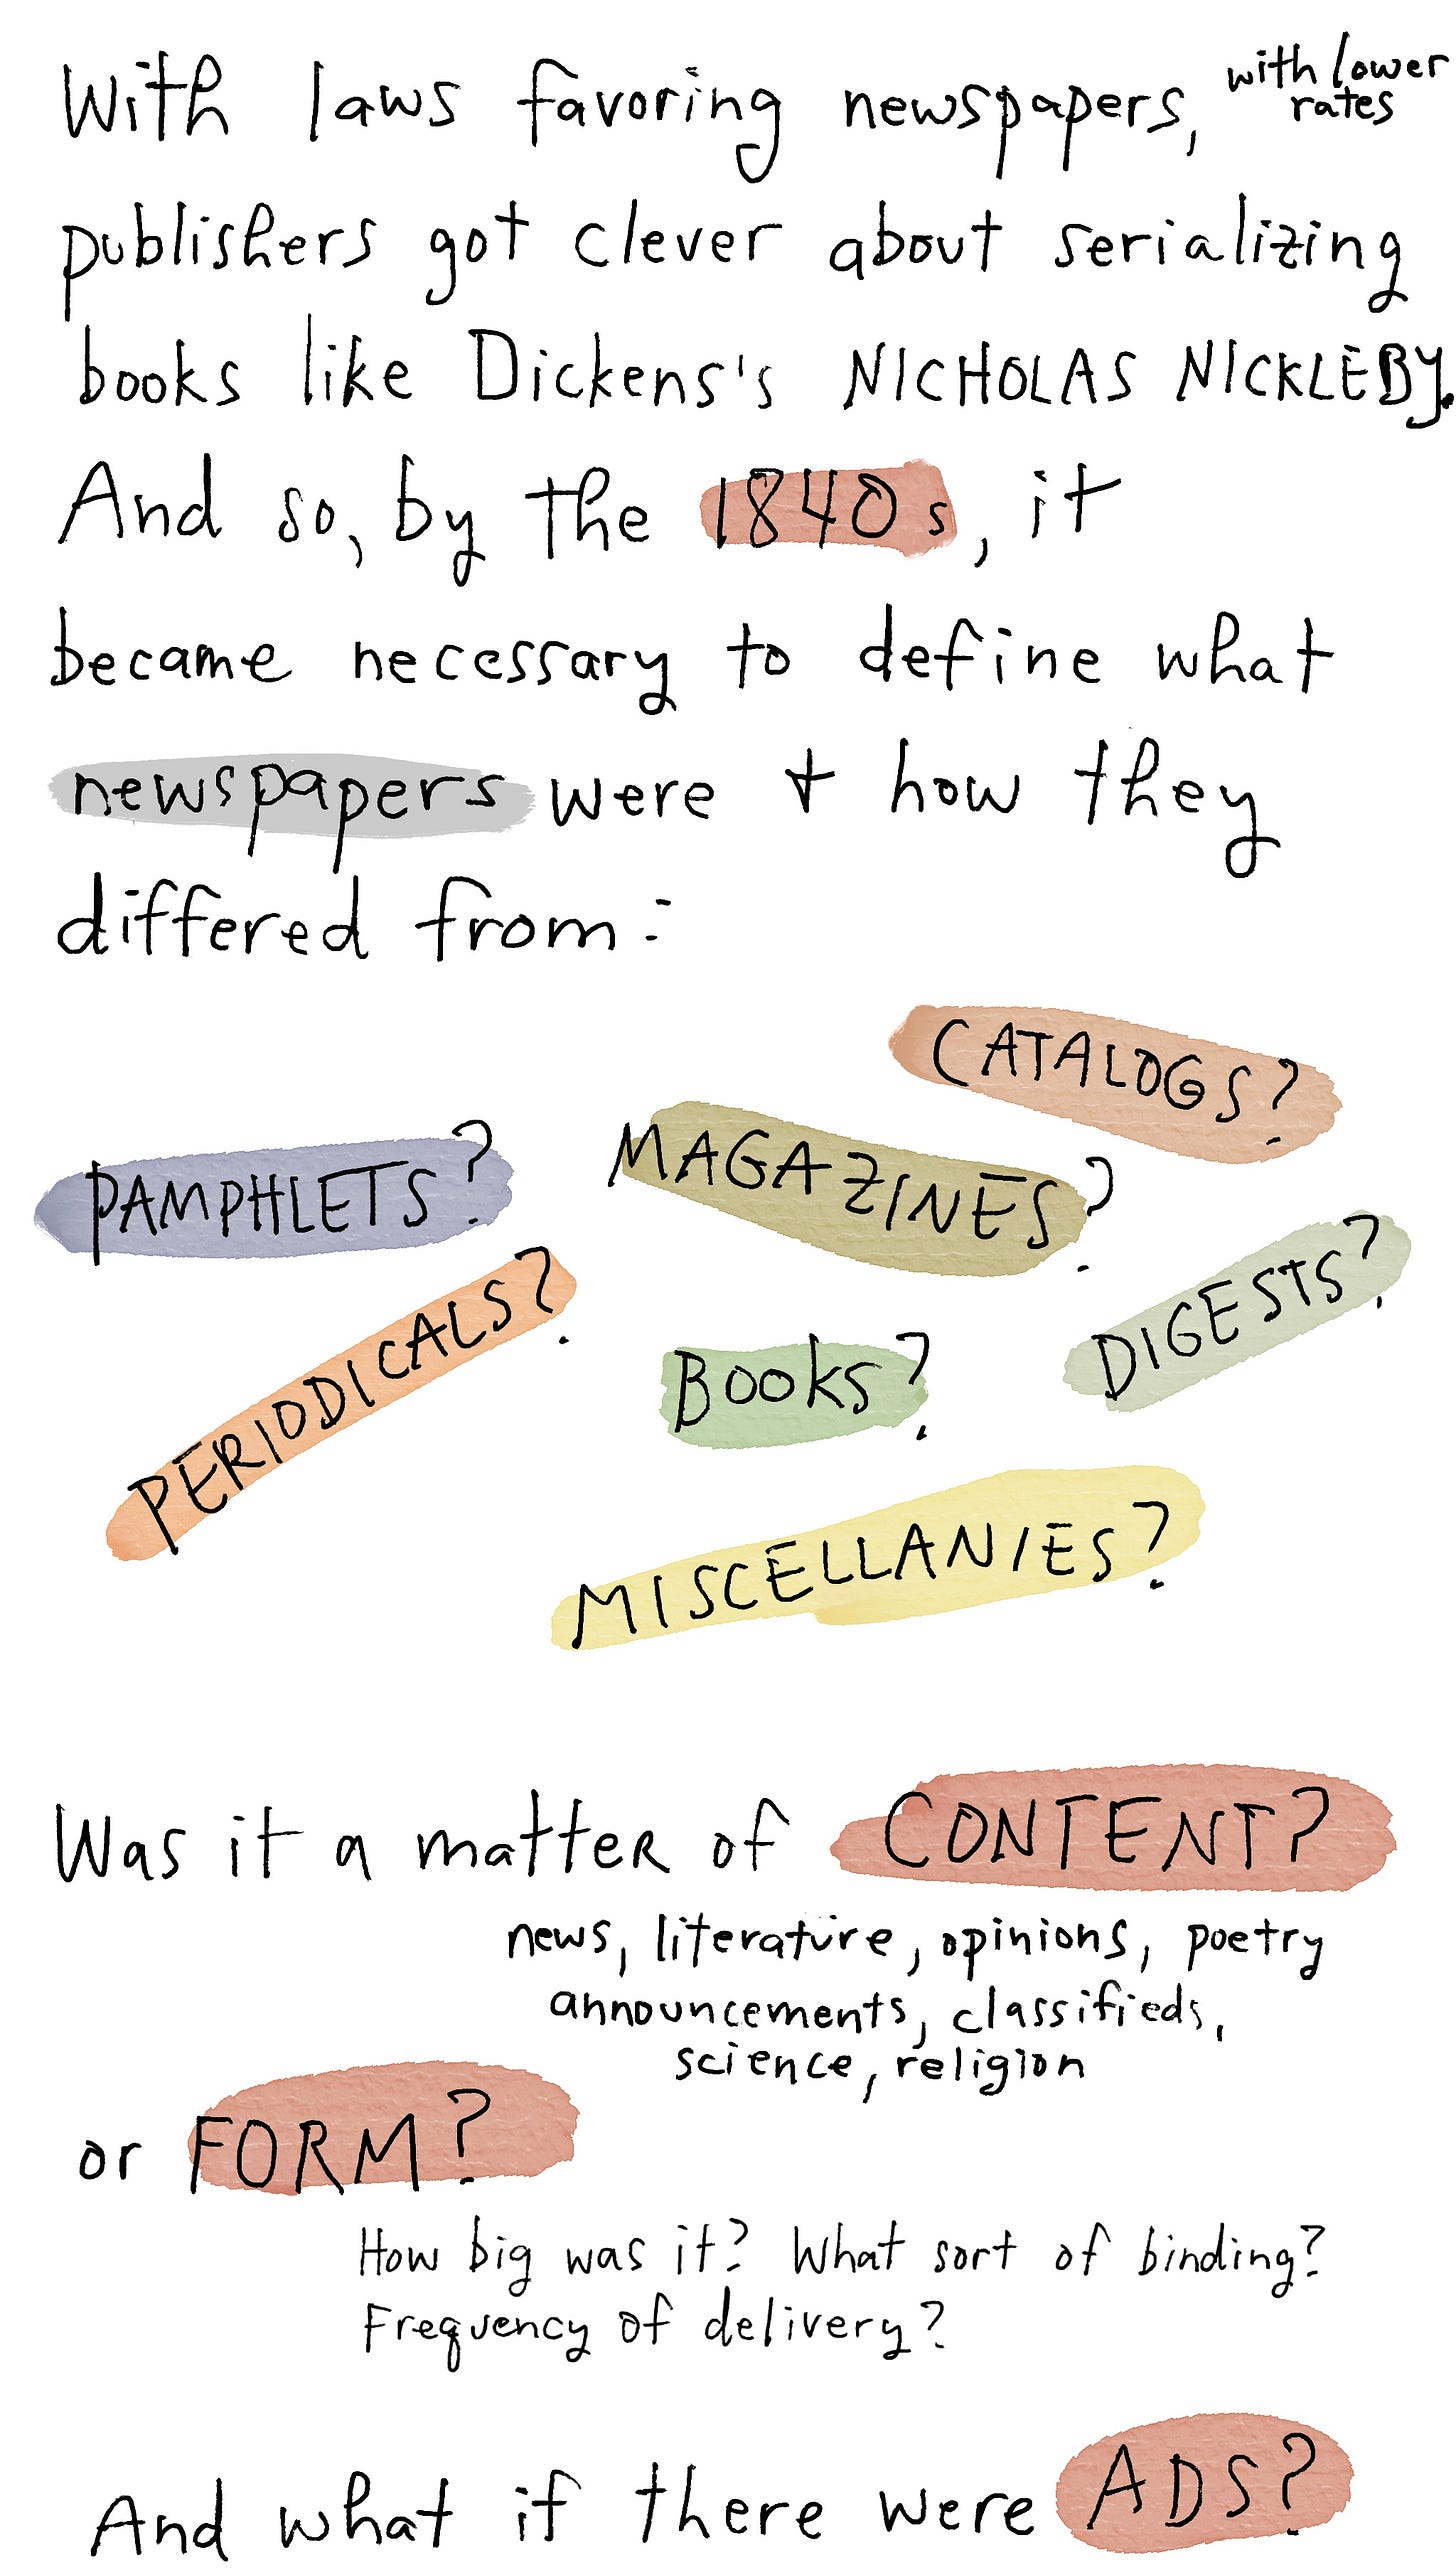 With laws favoring newspapers, with lower
rates
publishers got clever about serializing
books like Dickens's NICHOLAS NICKLEBY.
And so, by the 1840s, it
became necessary to define what
newspapers were + how they
differed from:
CATALOGS?
PAMPHLETS?
MAGAZINES?
PERIODICALS?
DIGESTS?
BOOKS?
MISCELLANIES?
Was it a matter of CONTENT?
news, literature, opinions, poetry
announcements, classifieds,
science, religion
or FORM?
How big was it? What sort of binding?
Frequency of delivery?
And what if there were ADS?